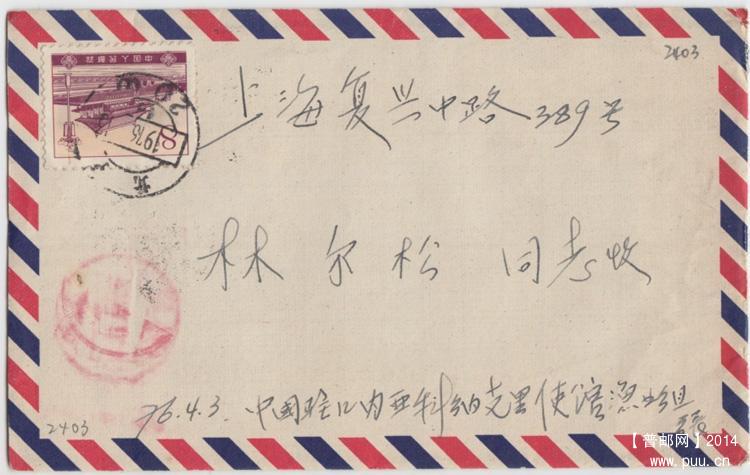 2403
中国人民邮政
8
1976
上海复兴中路389号
林尔松 同志收
76.4.3. 中國驻几内亚科纳克里使馆渔业组
2403
【普邮网】2014
www.puu.cn